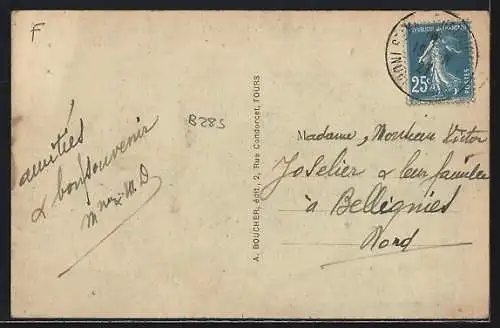 F
B285
amitiés
& bon souvenir
M D
A. BOUCHER, édit., 2, Rue Condorcet, TOURS
RÉPUBLIQUE FRANÇAISE
25c
POSTES
Madame, Monsieur Victor
Joselier & leur famille
à Bellignies
Nord